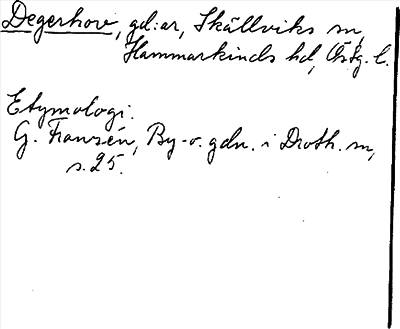 Degerhov, gd:ar, Skällviks sn,
Hammarkinds hd, Östg. l.
Etymologi.
G. Franzén, By-o. gdn. i Droth. sn,
s. 25.